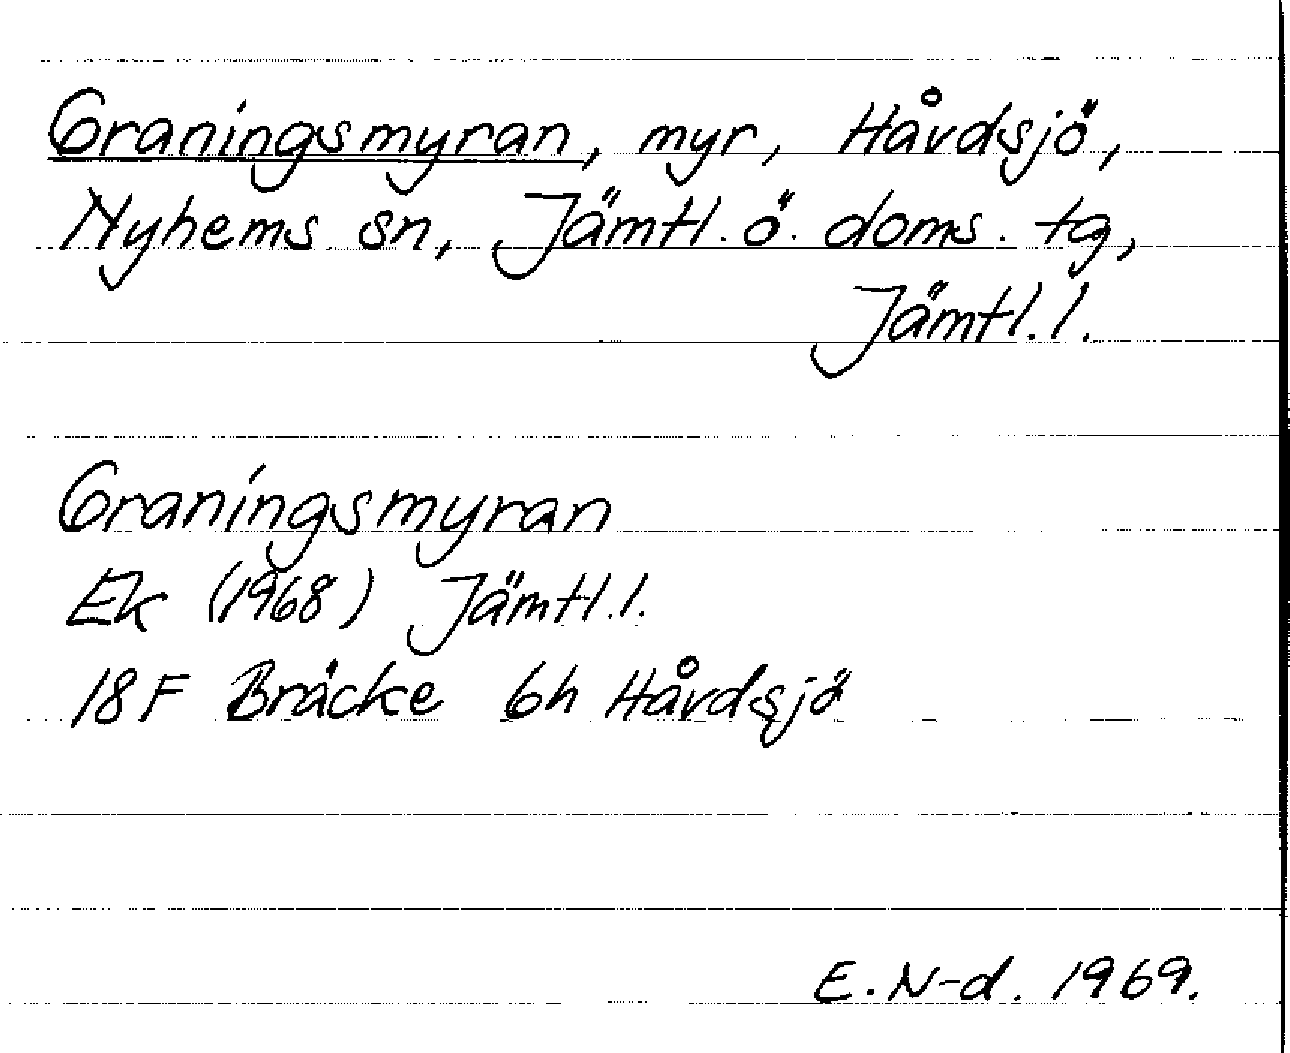 Graningsmyran, myr, Håvdsjö,
Nyhems sn, Jämtl. ö. doms. tg,
Jämtl. l.
Graningsmyran
Ek (1968) Jämtl. l.
18F Bräcke 6h Håvdsjö
E. N-d. 1969.